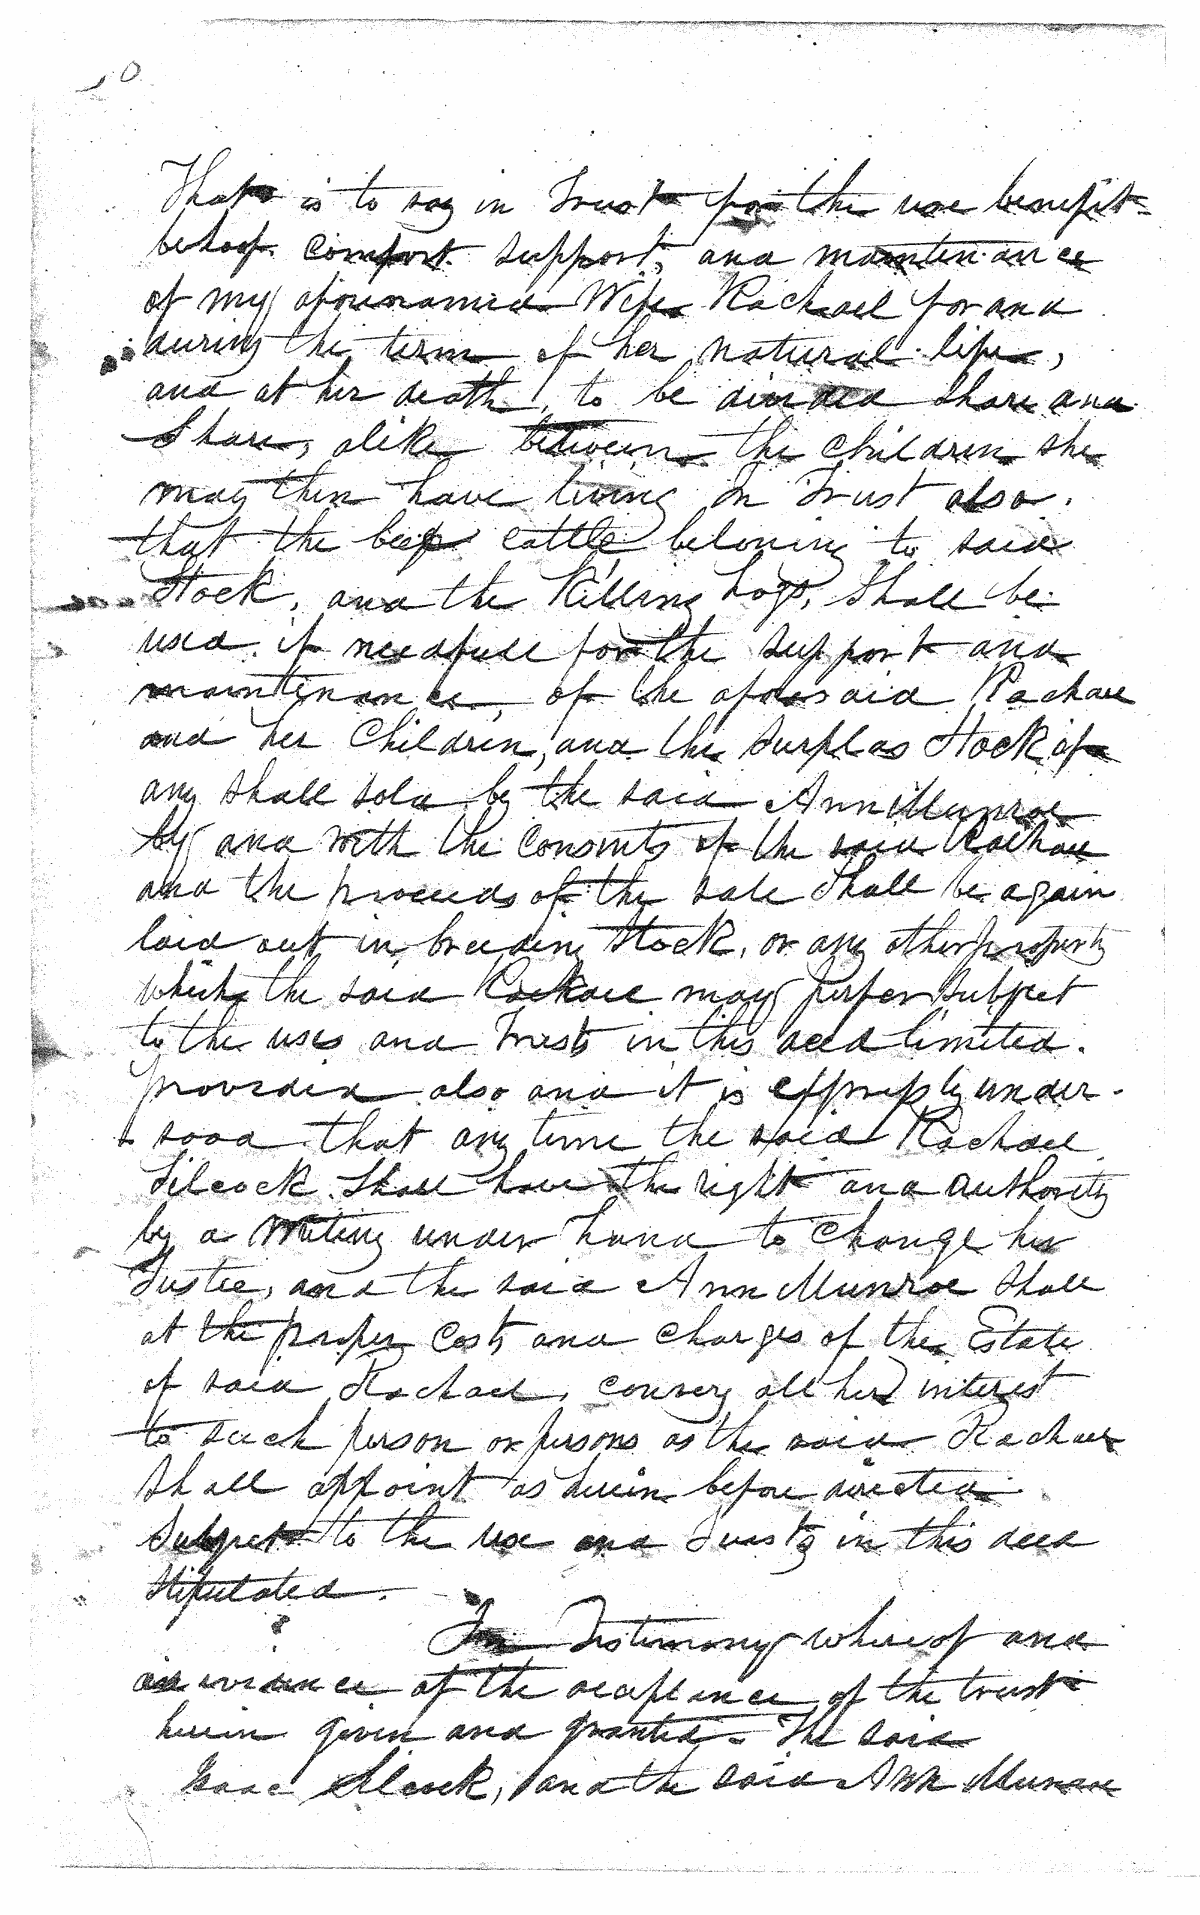 That is to say in Trust for the use benefit
behoof. comfort. support, and maintenance
of my aforenamed Wife Rachael for and
during the term of her natural life,
and at her death, to be divided Share and
Share, alike between the children she
may then have living In Trust also.
that the beef cattle beloning to said
Stock, and the Killing hogs, Shall be
used if needfull for the support and
maintenance, of the aforesaid Rachael
and her Children, and the Surplas Stock if
any shall sold by the said Ann Munroe
by and with the Consents of the said Rachael
and the proceeds of the sale Shall be again
laid out in breeding Stock, or any other property
which the said Rachael may prefer Subject
to the uses and Trusts in this deed limited.
provided also and it is expressly under-
sood that any time the said Rachael
Silcock Shall have the right and authority
by a Writing under hand to change her
Tustee, and the said Ann Munroe Shall
at the proper Costs and charges of the Estate
of said Rachael, convey all her interest
to such person or persons as the said Rachael
Shall appoint as herein before directed
Subject to the use and Trusts in this deed
Stipulated.
In Testimony whereof and
in evidence of the acceptance of the trust
herein given and granted. The said
Isaac Silcock, and the said Ann Munroe